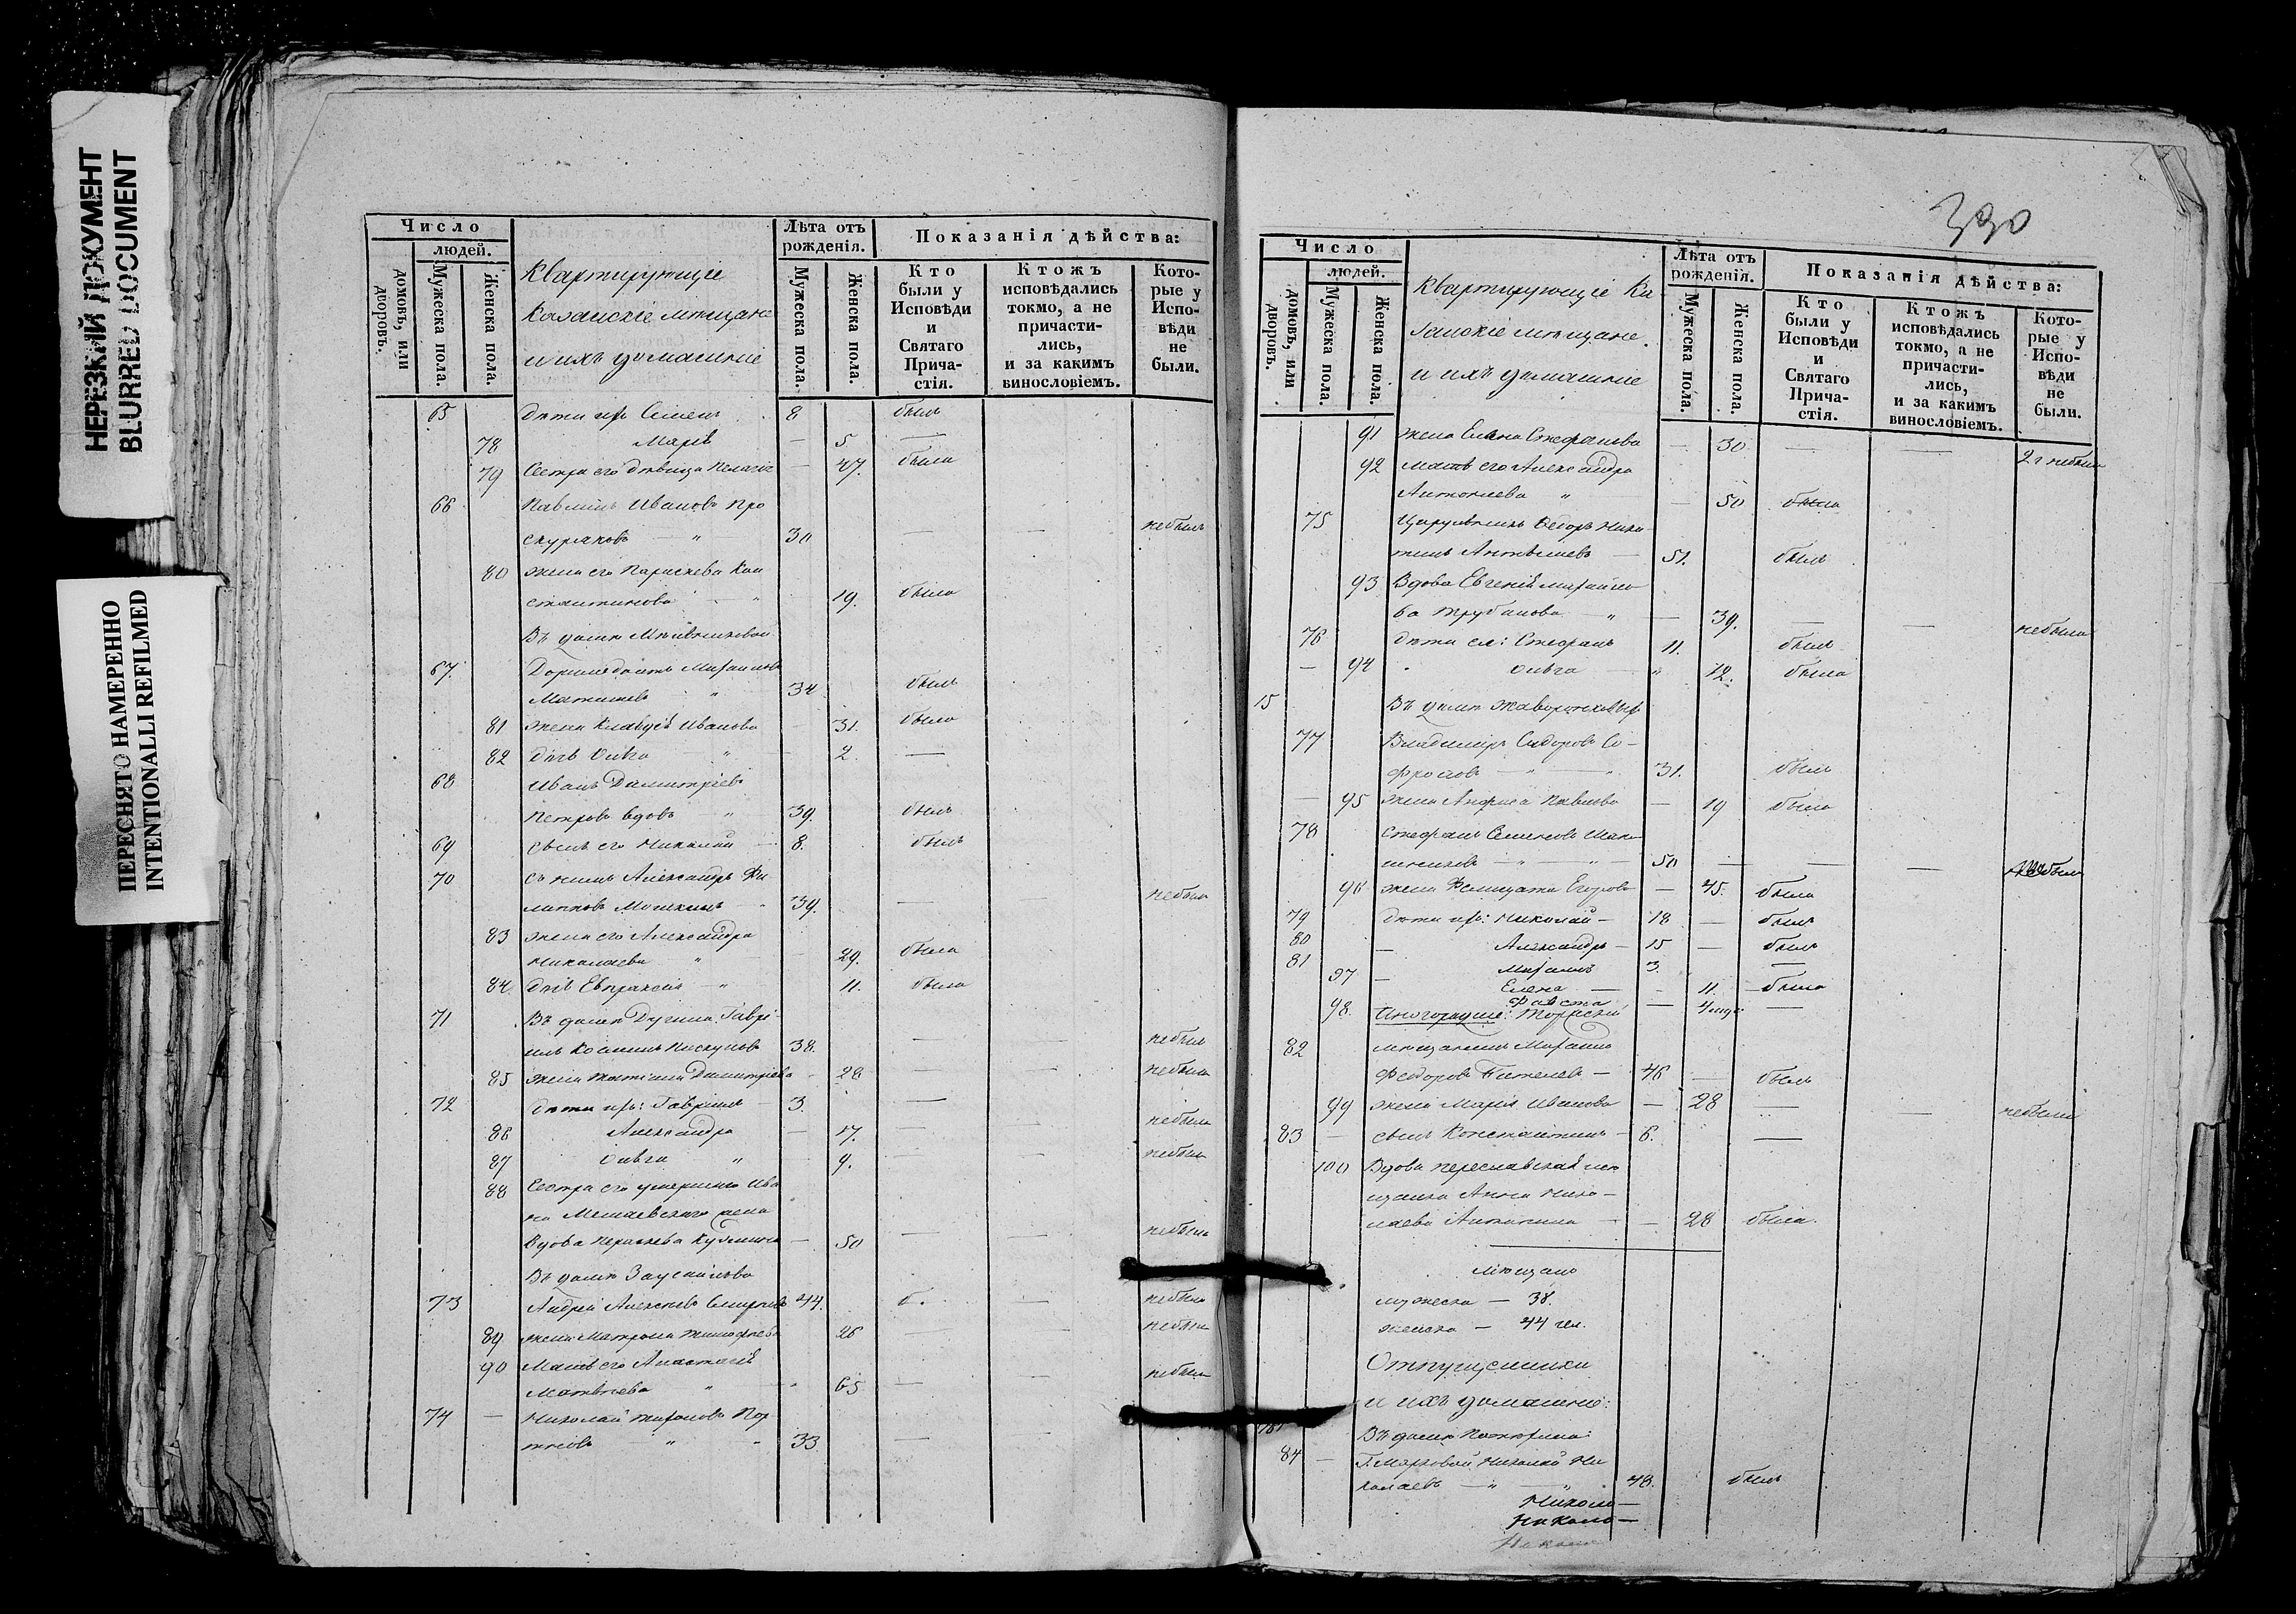 НЕРЕЗКИЙ ДОКУМЕНТ
BLURRED DOCUMENT
ПЕРЕСНЯТО НАМЕРЕННО
INTENTIONALLI REFILMED
Число
людей.
домовъ, или дворовъ.
Мужеска пола.
Женска пола.
Квартирующіе
Казанскіе мѣщане
и ихъ домашніе
Лѣта отъ рожденія.
Мужеска пола.
Женска пола.
Показанія дѣйства:
Кто были у Исповѣди и Святаго Причастія.
Ктожъ исповѣдались токмо, а не причастились, и за какимъ винословіемъ.
Которые у Исповѣди не были.
65 дѣти ихъ Семенъ 8 былъ
78 Марія — 5 —
79 Сестра его дѣвица Пелагія — 47. была
66 Павелъ Ивановъ Про
скуряковъ — " 30 — — небылъ
80 жена его Параскева Кон
стантинова " 19. была
Въ домѣ
67. Доримедонтъ Михаиловъ
" 34 былъ
81 жена Клавдія Иванова — 31. была
82 дочь Ольга " — 2. —
68 Иванъ Димитріевъ
Петровъ вдовъ — " 39. былъ
69 сынъ его Николай — 8. былъ
70 Съ нимъ Александръ Фи
липповъ Мошкинъ " 39. — небылъ
83 жена его Александра
Николаева " — 29. была
84. дочь Евпраксія — " 11. была
71 Въ домѣ Дугина Гаврі
илъ Косминъ Пискуновъ 38. — — небылъ
85 жена Татіана Димитріева — 28 — — небыла
72 дѣти ихъ: Гавріилъ — 3. —
86 Александра — 17. — — небыла
87 Ольга " — 9. — — небыла
88 Сестра его умершаго Ива
на
вдова Параскева Кузмина — 50 — — небыла
Въ домѣ Заусайлова
73 Андрей Алексѣевъ Смирновъ 44. б. — небылъ
89 жена Матрона Тимофеева 26 — — небыла
90 Мать его Анастасія
Матвѣева " — " 65 — — небыла
74 — Николай Тихоновъ Пор
тновъ — " " 33 —
390
Число
людей.
домовъ, или дворовъ.
Мужеска пола.
Женска пола.
Квартирующіе Ка
занскіе мѣщане.
и ихъ домашніе
Лѣта отъ рожденія.
Мужеска пола.
Женска пола.
Показанія дѣйства:
Кто были у Исповѣди и Святаго Причастія.
Ктожъ исповѣдались токмо, а не причастились, и за какимъ винословіемъ.
Которые у Исповѣди не были.
91 жена Елена Стефанова — 30 — — 2 г небыла
92 мать его Александра
Антониева " — 50 была
75 Цирульникъ Ѳедоръ Ники
тинъ — 51. былъ
93 Вдова Евгенія Михаило
ва Трубанова — " — 39. — — небыла
76 дѣти ея: Стефанъ 11. былъ
— 94 Ольга " 12. была
15 Въ домѣ Жаворонковыхъ
77 Владиміръ Сидоровъ Со
фроновъ — " — " 31. былъ
— 95 жена Анфиса Павлова — 19 была
78 Стефанъ Семеновъ Шап
шниковъ — " — " — 50 — — — небылъ
96 жена Фелицата Егорова — 45. была
79 дѣти ихъ: Николай — 18 — былъ
80 — Александръ — 15 — былъ
81 Михаилъ 3. —
97 — Елена — — 11. — была
98. Фавста — 4 нед. —
Иногородные: Торжскій
82 мѣщанинъ Михаилъ
Федоровъ — 46 — былъ
99 жена Марія Иванова — 28 — — небыла
83 — сынъ Константинъ — 6. —
100 Вдова переславская мѣ
щанка Анна Нико
лаева — — 28 была.
мѣщанъ
мужеска — 38.
женска — 44 чел.
Отпущенники
и ихъ домашніе:
Въ домѣ
84 — Николай Ни
колаевъ — " — " 48. былъ